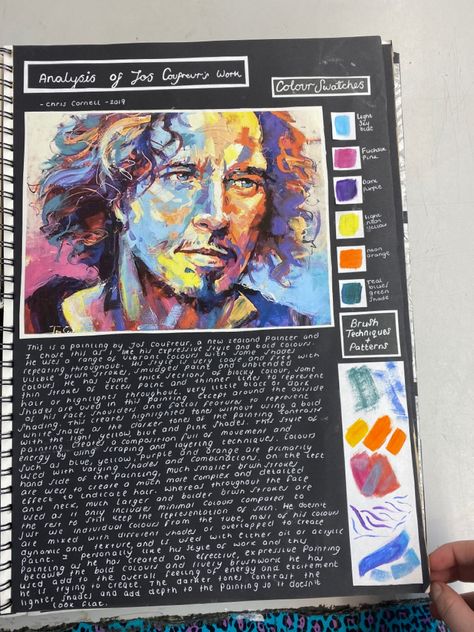 Analysis of Jos Coufreur's Work
- Chris Cornell - 2019
Colour Swatches
light Sky blue
Fuchsia Pink
Dark Purple
light neon yellow
neon orange
teal blue/ green shade
Brush Techniques + Patterns
This is a painting by Jos Coufreur, a new zealand Painter and
I chose this as I like his expressive style and bold colours.
He uses a range of vibrant colours with some shades
repeating throughout. His style is very loose and free with
visible brush strokes, smudged paint and unblended
colour. He has some thick sections of blocky colour, some
thin stroke of excess paint and thinner lines to represent
hair or highlights throughout. very little black or dark
shades are used in this painting except around the outside
of his face, shoulders and facial features to represent
shading. This creates highlighted tone without using a bold
white shade as the darker tones of the painting contrasts
with the light yellow, blue and pink shades. This style of
painting creates a composition full of movement and
energy by using scraping and layering techniques. Colours
such as blue, yellow, purple and orange are primarily
used with varying shades and combinations. On the left
hand side of the painting, much smaller brush strokes
are used to create a much more complex and detailed
effect to indicate hair. Whereas throughout the face
and neck, much larger and bolder brush stroke are
used as it only includes minimal colours compared to
the rest to still keep the representation of skin. He doesn't
just use individual colours from the tube, most of his colours
are mixed with different shades or overlapped to create
dynamic and texture, and is used with either oil or acrylic
paint. I personally like his style of work and this
painting as he has created an effective, expressive painting
because the bold colours and lively brushwork he has
used add to the overall feeling of energy and excitement
he is trying to create. The darker tones contrast the
lighter shades and add depth to the painting so it doesn't
look flat.